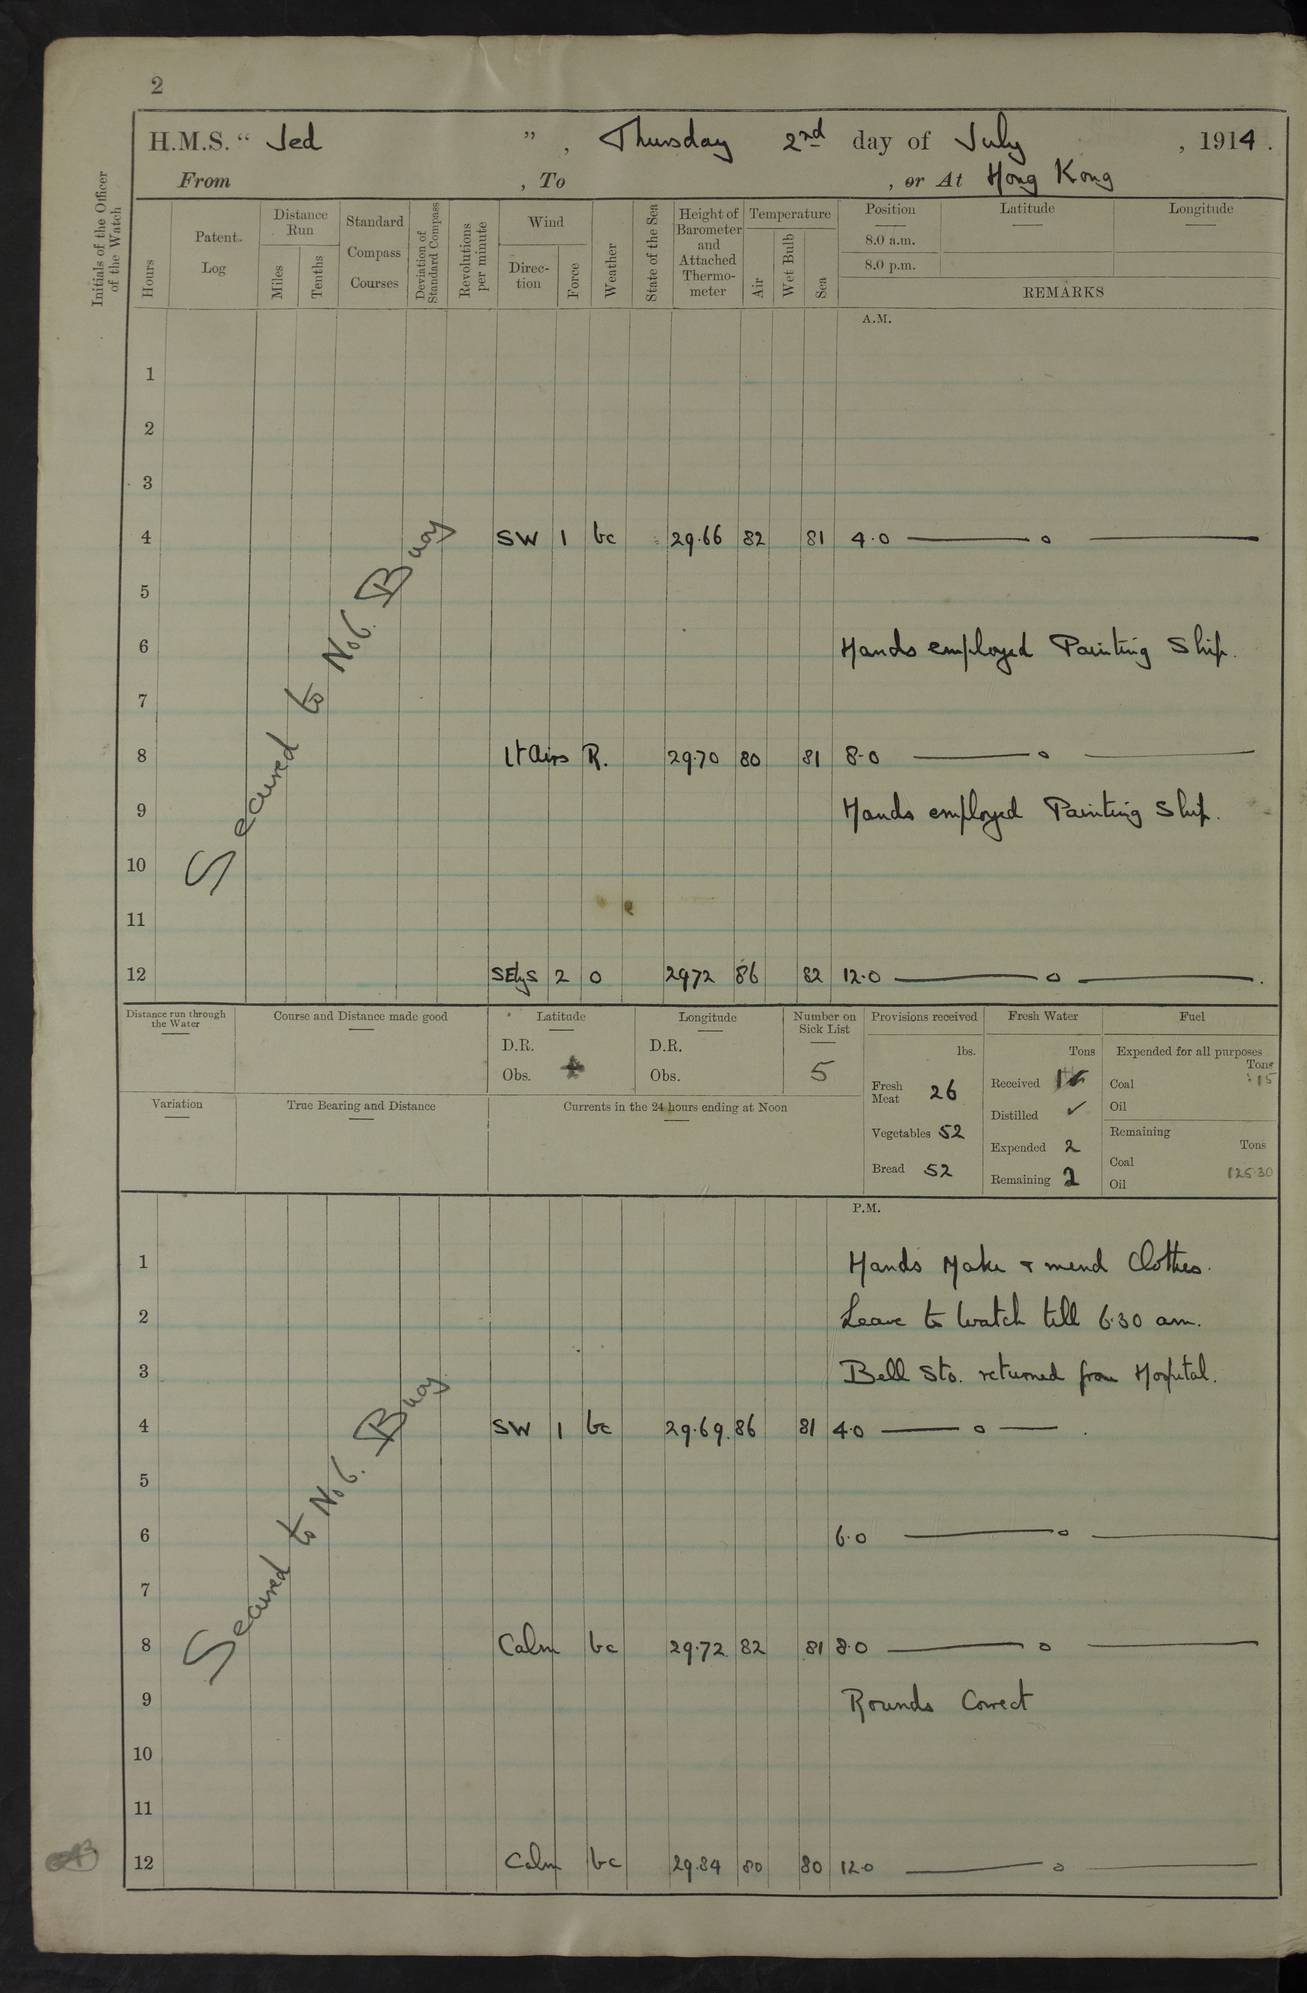 2
H.M.S. " Jed ", Thursday 2nd day of July, 1914.
From , To , or At Hong Kong
Initials of the Officer of the Watch
Hours
Patent Log
Distance Run
Miles
Tenths
Standard Compass Courses
Deviation of Standard Compass
Revolutions per minute
Wind
Direction
Force
Weather
State of the Sea
Height of Barometer and Attached Thermometer
Temperature
Air
Wet Bulb
Sea
Position Latitude Longitude
8.0 a.m.
8.0 p.m.
REMARKS
A.M.
1
2
3
4 SW 1 bc 29.66 82 81 4.0 — o —
5
6 Hands employed Painting Ship.
7
8 Lt Airs R. 29.70 80 81 8.0 — o —
9 Hands employed Painting Ship.
10
11
12 SElys 2 o 2972 86 82 12.0 — o —
Secured to No 6. Buoy
Distance run through the Water
Course and Distance made good
Latitude
D.R.
Obs.
Longitude
D.R.
Obs.
Number on Sick List
5
Provisions received
lbs.
Fresh Meat 26
Vegetables 52
Bread 52
Fresh Water
Tons
Received
Distilled ✓
Expended 2
Remaining 2
Fuel
Expended for all purposes
Tons
Coal .15
Oil
Remaining
Tons
Coal 125.30
Oil
Variation
True Bearing and Distance
Currents in the 24 hours ending at Noon
P.M.
1 Hands Make & mend Clothes.
2 Leave to Watch till 6.30 am.
3 Bell Sto. returned from Hospital.
4 SW 1 bc 29.69 86 81 4.0 — o —
5
6 6.0 — o —
7
8 Calm bc 29.72 82 81 8.0 — o —
9 Rounds Correct
10
11
12 Calm bc 29.84 80 80 12.0 — o —
Secured to No 6. Buoy